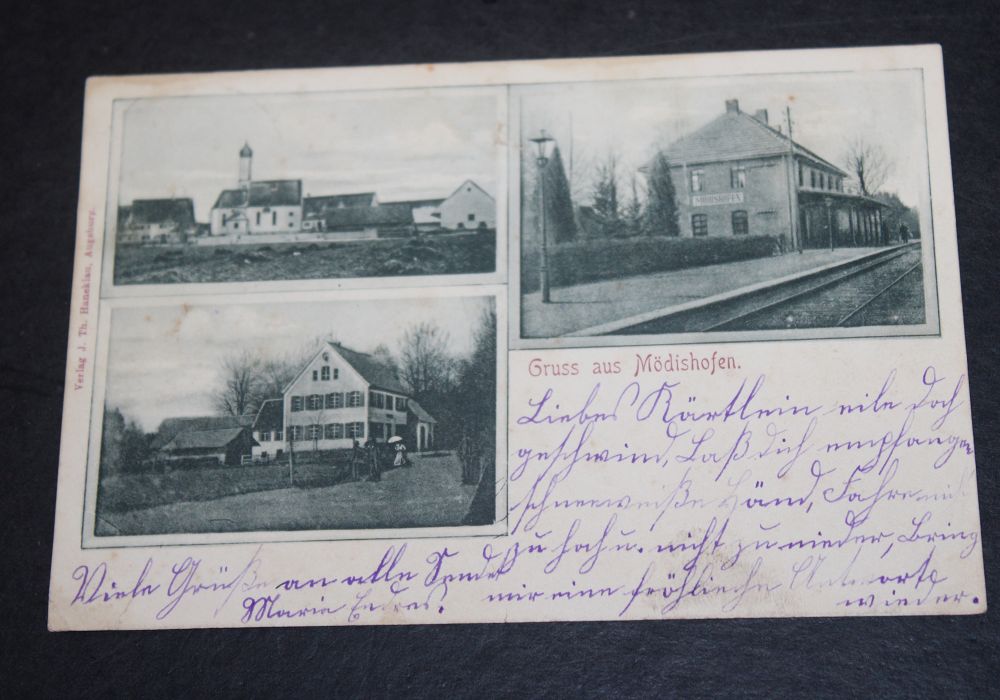 Verlag J. Th. Haneklau, Augsburg.
MÖDISHOFEN
Gruss aus Mödishofen.
Liebes Kärtlein eile doch
geschwind, Laß dich empfangen
schneeweiße Händ, Fahre nicht
zu hoch u. nicht zu nieder, Bring
mir eine fröhliche Antwort
wieder.
Viele Grüße an alle Sendet
Maria Endres.